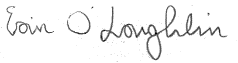 Eoin O'Loughlin